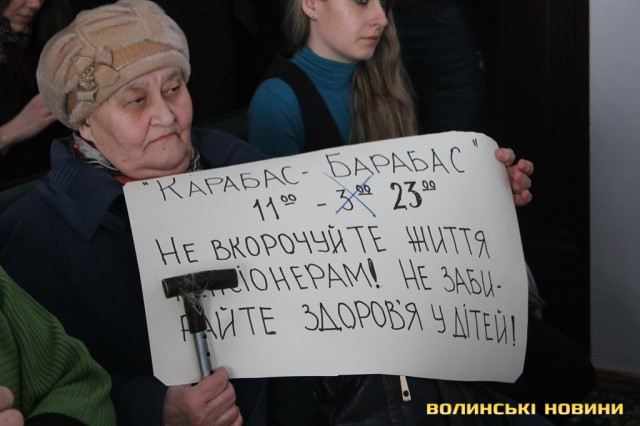 "КАРАБАС- БАРАБАС"
11⁰⁰ - 3⁰⁰ 23⁰⁰
НЕ ВКОРОЧУЙТЕ ЖИТТЯ
ПЕНСІОНЕРАМ! НЕ ЗАБИ-
РАЙТЕ ЗДОРОВ'Я У ДІТЕЙ!
ВОЛИНСЬКІ НОВИНИ